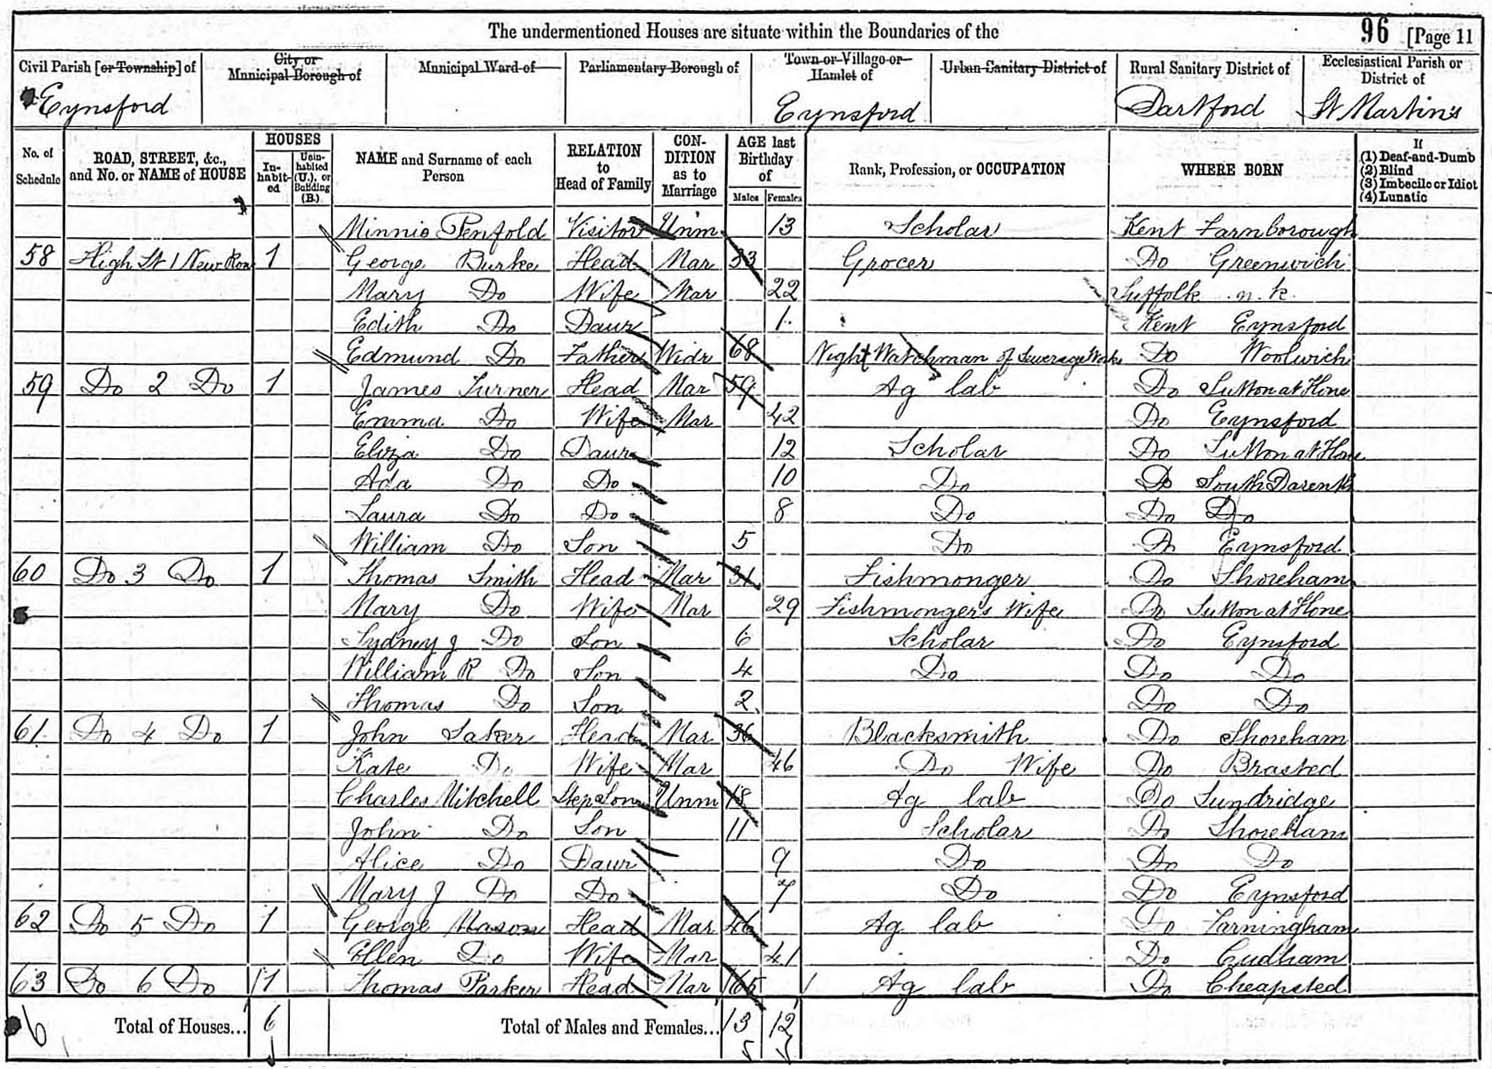 The undermentioned Houses are situate within the Boundaries of the 96 [Page 11
Civil Parish [or Township] of City or Municipal Borough of Municipal Ward of Parliamentary Borough of Town or Village or Hamlet of Urban Sanitary District of Rural Sanitary District of Ecclesiastical Parish or District of
Eynsford Eynsford Dartford St Martin's
No. of Schedule ROAD, STREET, &c., and No. or NAME of HOUSE HOUSES In-habit-ed Unin-habited (U.), or Building (B.) NAME and Surname of each Person RELATION to Head of Family CON-DITION as to Marriage AGE last Birthday of Males Females Rank, Profession, or OCCUPATION WHERE BORN If (1) Deaf-and-Dumb (2) Blind (3) Imbecile or Idiot (4) Lunatic
Minnie Penfold Visitor Unm 13 Scholar Kent Farnborough
58 High St 1 New Row 1 George Burke Head Mar 33 Grocer Do Greenwich
Mary Do Wife Mar 22 Suffolk n.k.
Edith Do Daur 1 Kent Eynsford
Edmund Do Father Widr 68 Night Watchman of Sewerage Works Do Woolwich
59 Do 2 Do 1 James Turner Head Mar 59 Ag lab Do Sutton at Hone
Emma Do Wife Mar 42 Do Eynsford
Eliza Do Daur 12 Scholar Do Sutton at Hone
Ada Do Do 10 Do Do South Darenth
Laura Do Do 8 Do Do Do
William Do Son 5 Do Do Eynsford
60 Do 3 Do 1 Thomas Smith Head Mar 31 Fishmonger Do Shoreham
Mary Do Wife Mar 29 Fishmonger's Wife Do Sutton at Hone
Sydney J Do Son 6 Scholar Do Eynsford
William R Do Son 4 Do Do Do
Thomas Do Son 2 Do Do
61 Do 4 Do 1 John Saker Head Mar 36 Blacksmith Do Shoreham
Kate Do Wife Mar 46 Do Wife Do Brasted
Charles Mitchell Step Son Unm 18 Ag lab Do Sundridge
John Do Son 11 Scholar Do Shoreham
Alice Do Daur 9 Do Do Do
Mary J Do Do 7 Do Do Eynsford
62 Do 5 Do 1 George Mason Head Mar 46 Ag lab Do Farningham
Ellen Do Wife Mar 41 Do Cudham
63 Do 6 Do 1 Thomas Parker Head Mar 65 Ag lab Do Cheapsted
6 Total of Houses... 6 Total of Males and Females... 13 12